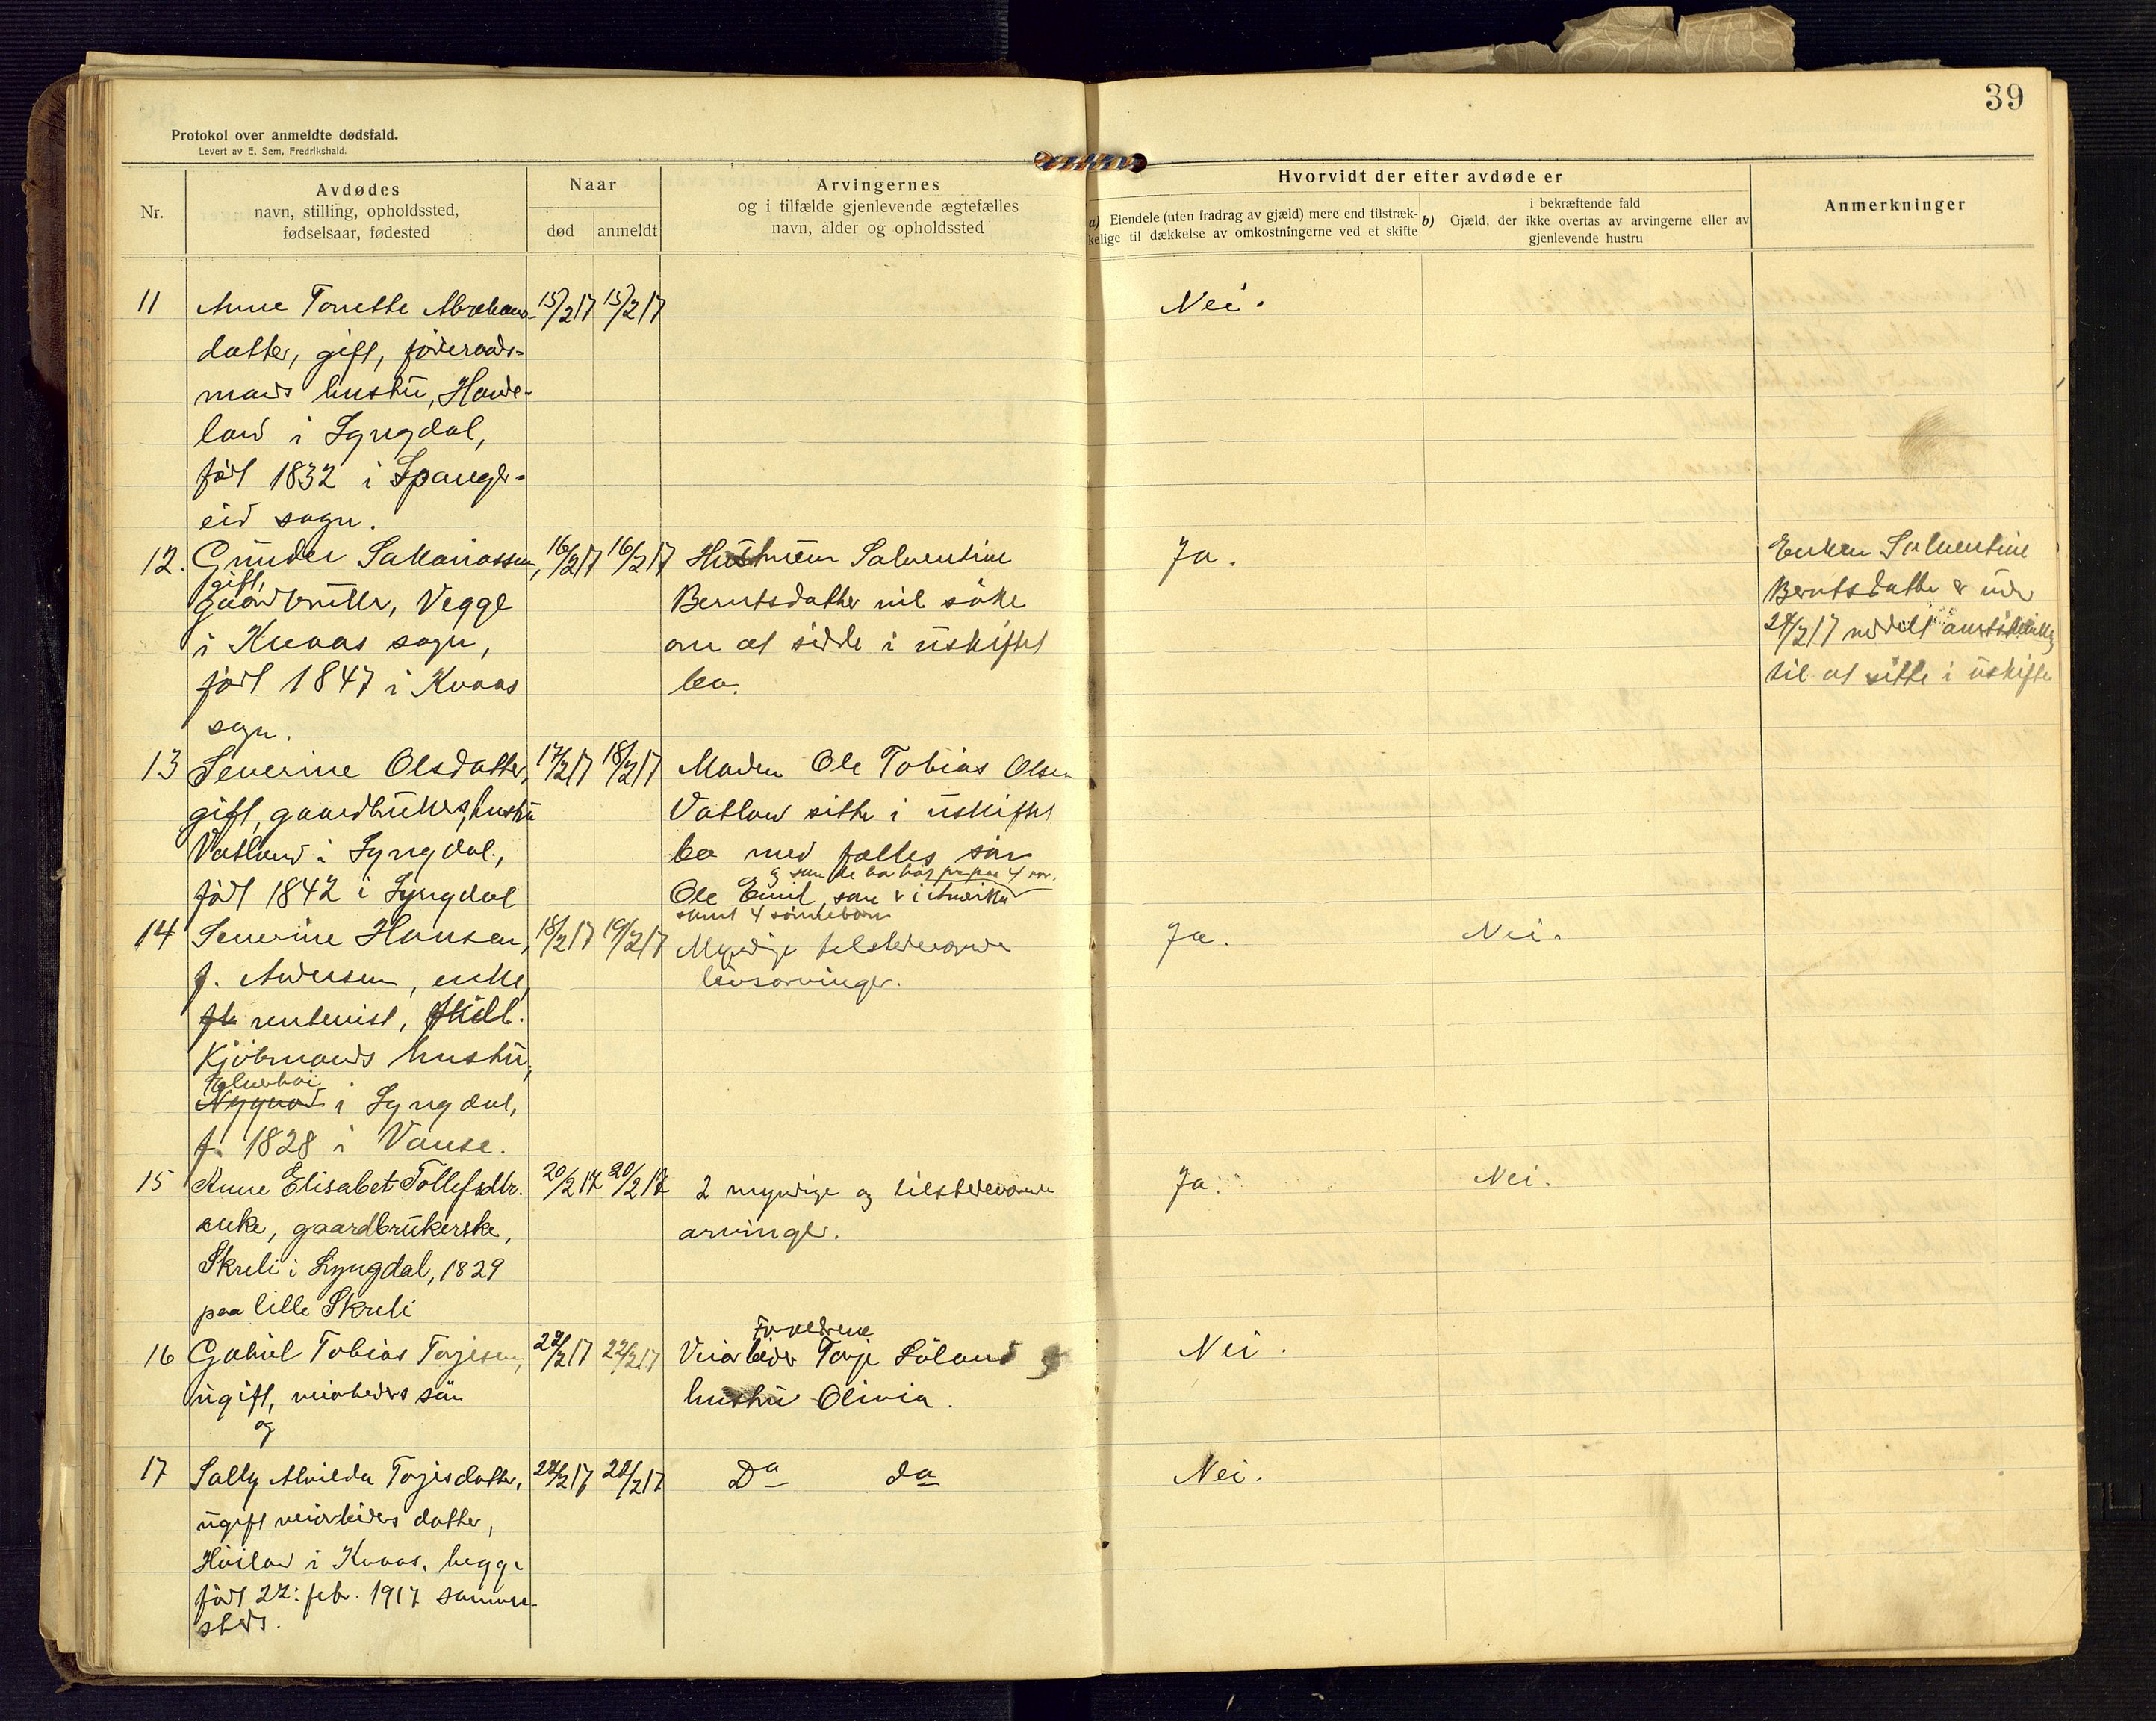 39
Protokol over anmeldte dødsfald.
Levert av E. Sem, Fredrikshald.
Nr.
Avdødes
navn, stilling, opholdssted,
fødselsaar, fødested
Naar
død anmeldt
Arvingernes
og i tilfælde gjenlevende ægtefælles
navn, alder og opholdssted
Hvorvidt der efter avdøde er
a) Eiendele (uten fradrag av gjæld) mere end tilstræk-
kelige til dækkelse av omkostningerne ved et skifte
i bekræftende fald
b) Gjæld, der ikke overtas av arvingerne eller av
gjenlevende hustru
Anmerkninger
11 Anne Tonette Abrahams- 15/2 17 15/2 17 Nei.
datter, gift, føderaads-
mands hustru, Haave-
land i Lyngdal,
født 1832 i Spanger-
eid sogn.
12. Gunder Sakariassen, 16/2 17 16/2 17 Hustruen Salventine Ja. Enken Salventine
gift,
gaardbruker, Vegge Berntsdatter vil søke Berntsdatter er under
i Kvaas sogn, om at sidde i uskiftet 24/2 17 meddelt
født 1847 i Kvaas bo. til at sitte i uskifte
sogn.
13 Severine Olsdatter, 17/2 17 18/2 17 Manden Ole Tobias Olsen
gift, gaardbrukers hustru Vatland sitter i uskiftet
Vatland i Lyngdal, bo med fælles søn
født 1842 i Lyngdal Ole Emil, som er i Amerika
samt 4 sønnebørn
14 Severine Hansen, 18/2 17 19/2 17 Myndige tilstedeværende Ja. Nei.
f. Andersen, enke, livsarvinger.
rentenist,
Kjøbmands hustru,
Nygaard i Lyngdal,
f. 1828 i Vanse.
15 Anne Elisabet Tollefsdtr. 20/2 17 20/2 17 2 myndige og tilstedeværende Ja. Nei.
enke, gaardbrukerske, arvinger.
Skreli i Lyngdal, 1829
paa lille Skreli
Forældrene
16 Gabriel Tobias Torjesen, 22/2 17 22/2 17 Veiarbeider Torje Löland og Nei.
ugift, veiarbeiders søn hustru Olivia.
og
17 Sally Alvilda Torjesdatter, 22/2 17 22/2 17 Do do Nei.
ugift veiarbeiders datter,
Høiland i Kvaas, begge
født 22: feb. 1917 samme-
steds.